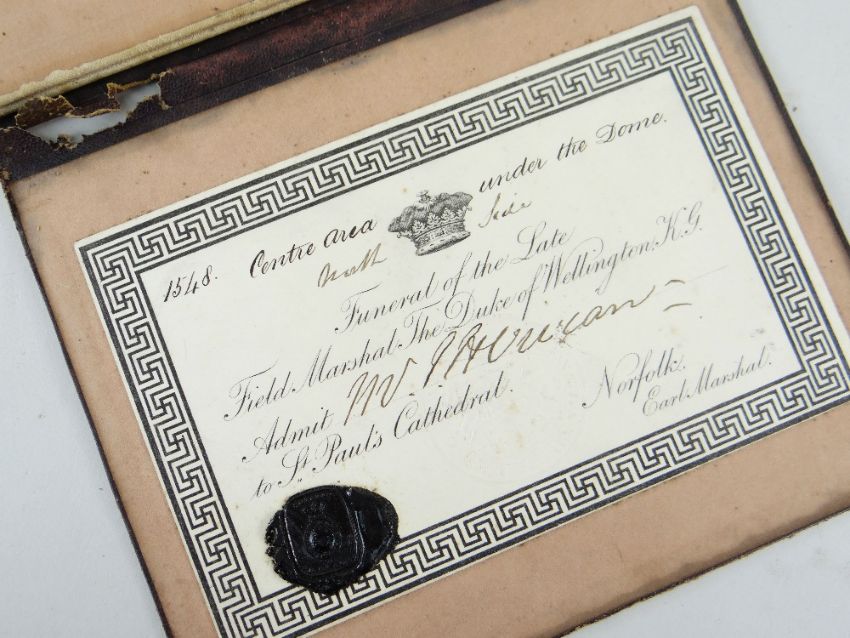 1548. Centre area under the Dome.
North Side
Funeral of the Late
Field Marshal The Duke of Wellington, K.G.
Admit
to St. Paul's Cathedral.
Norfolk.
Earl Marshal.